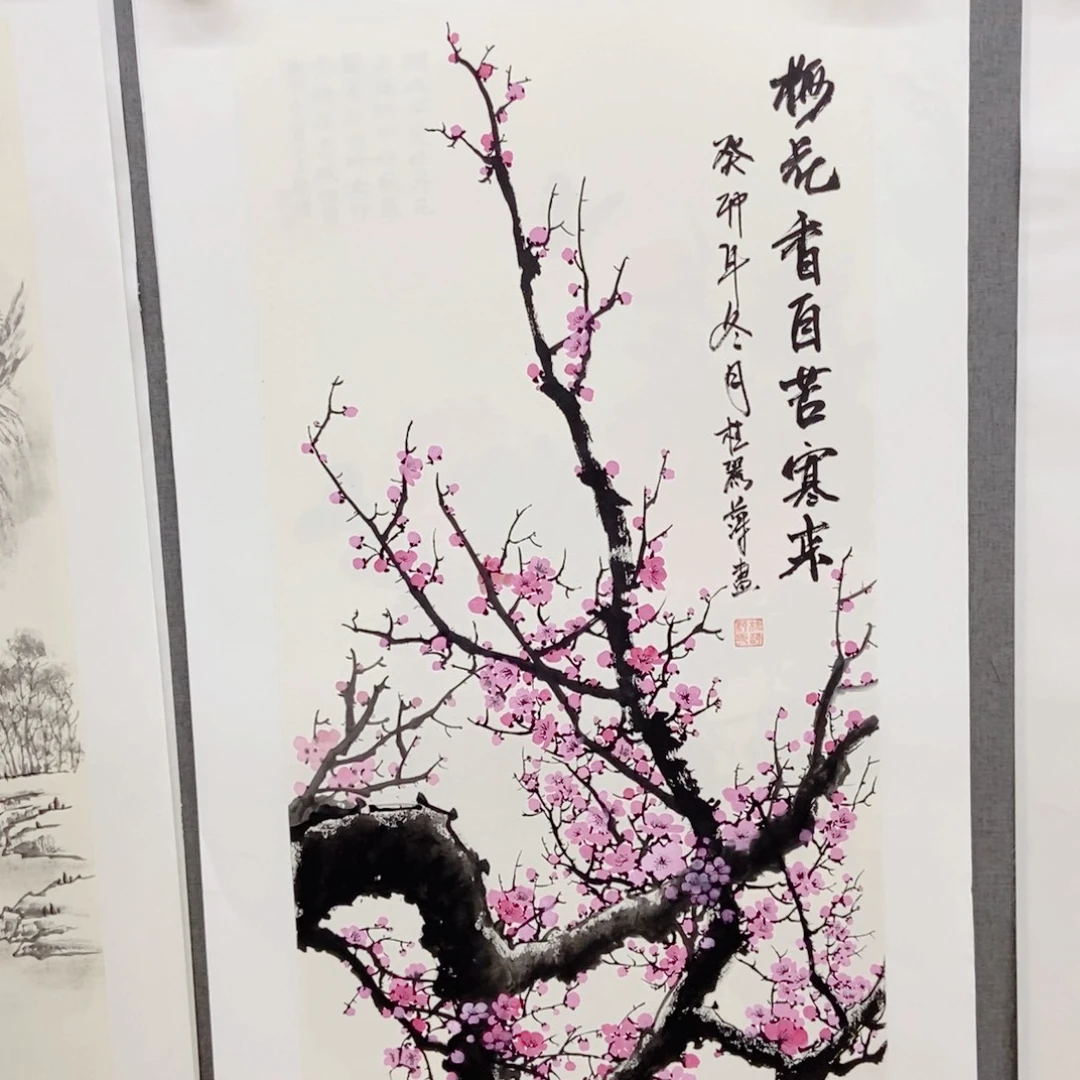 梅花香自苦寒来
癸卯年冬月桂器萍画